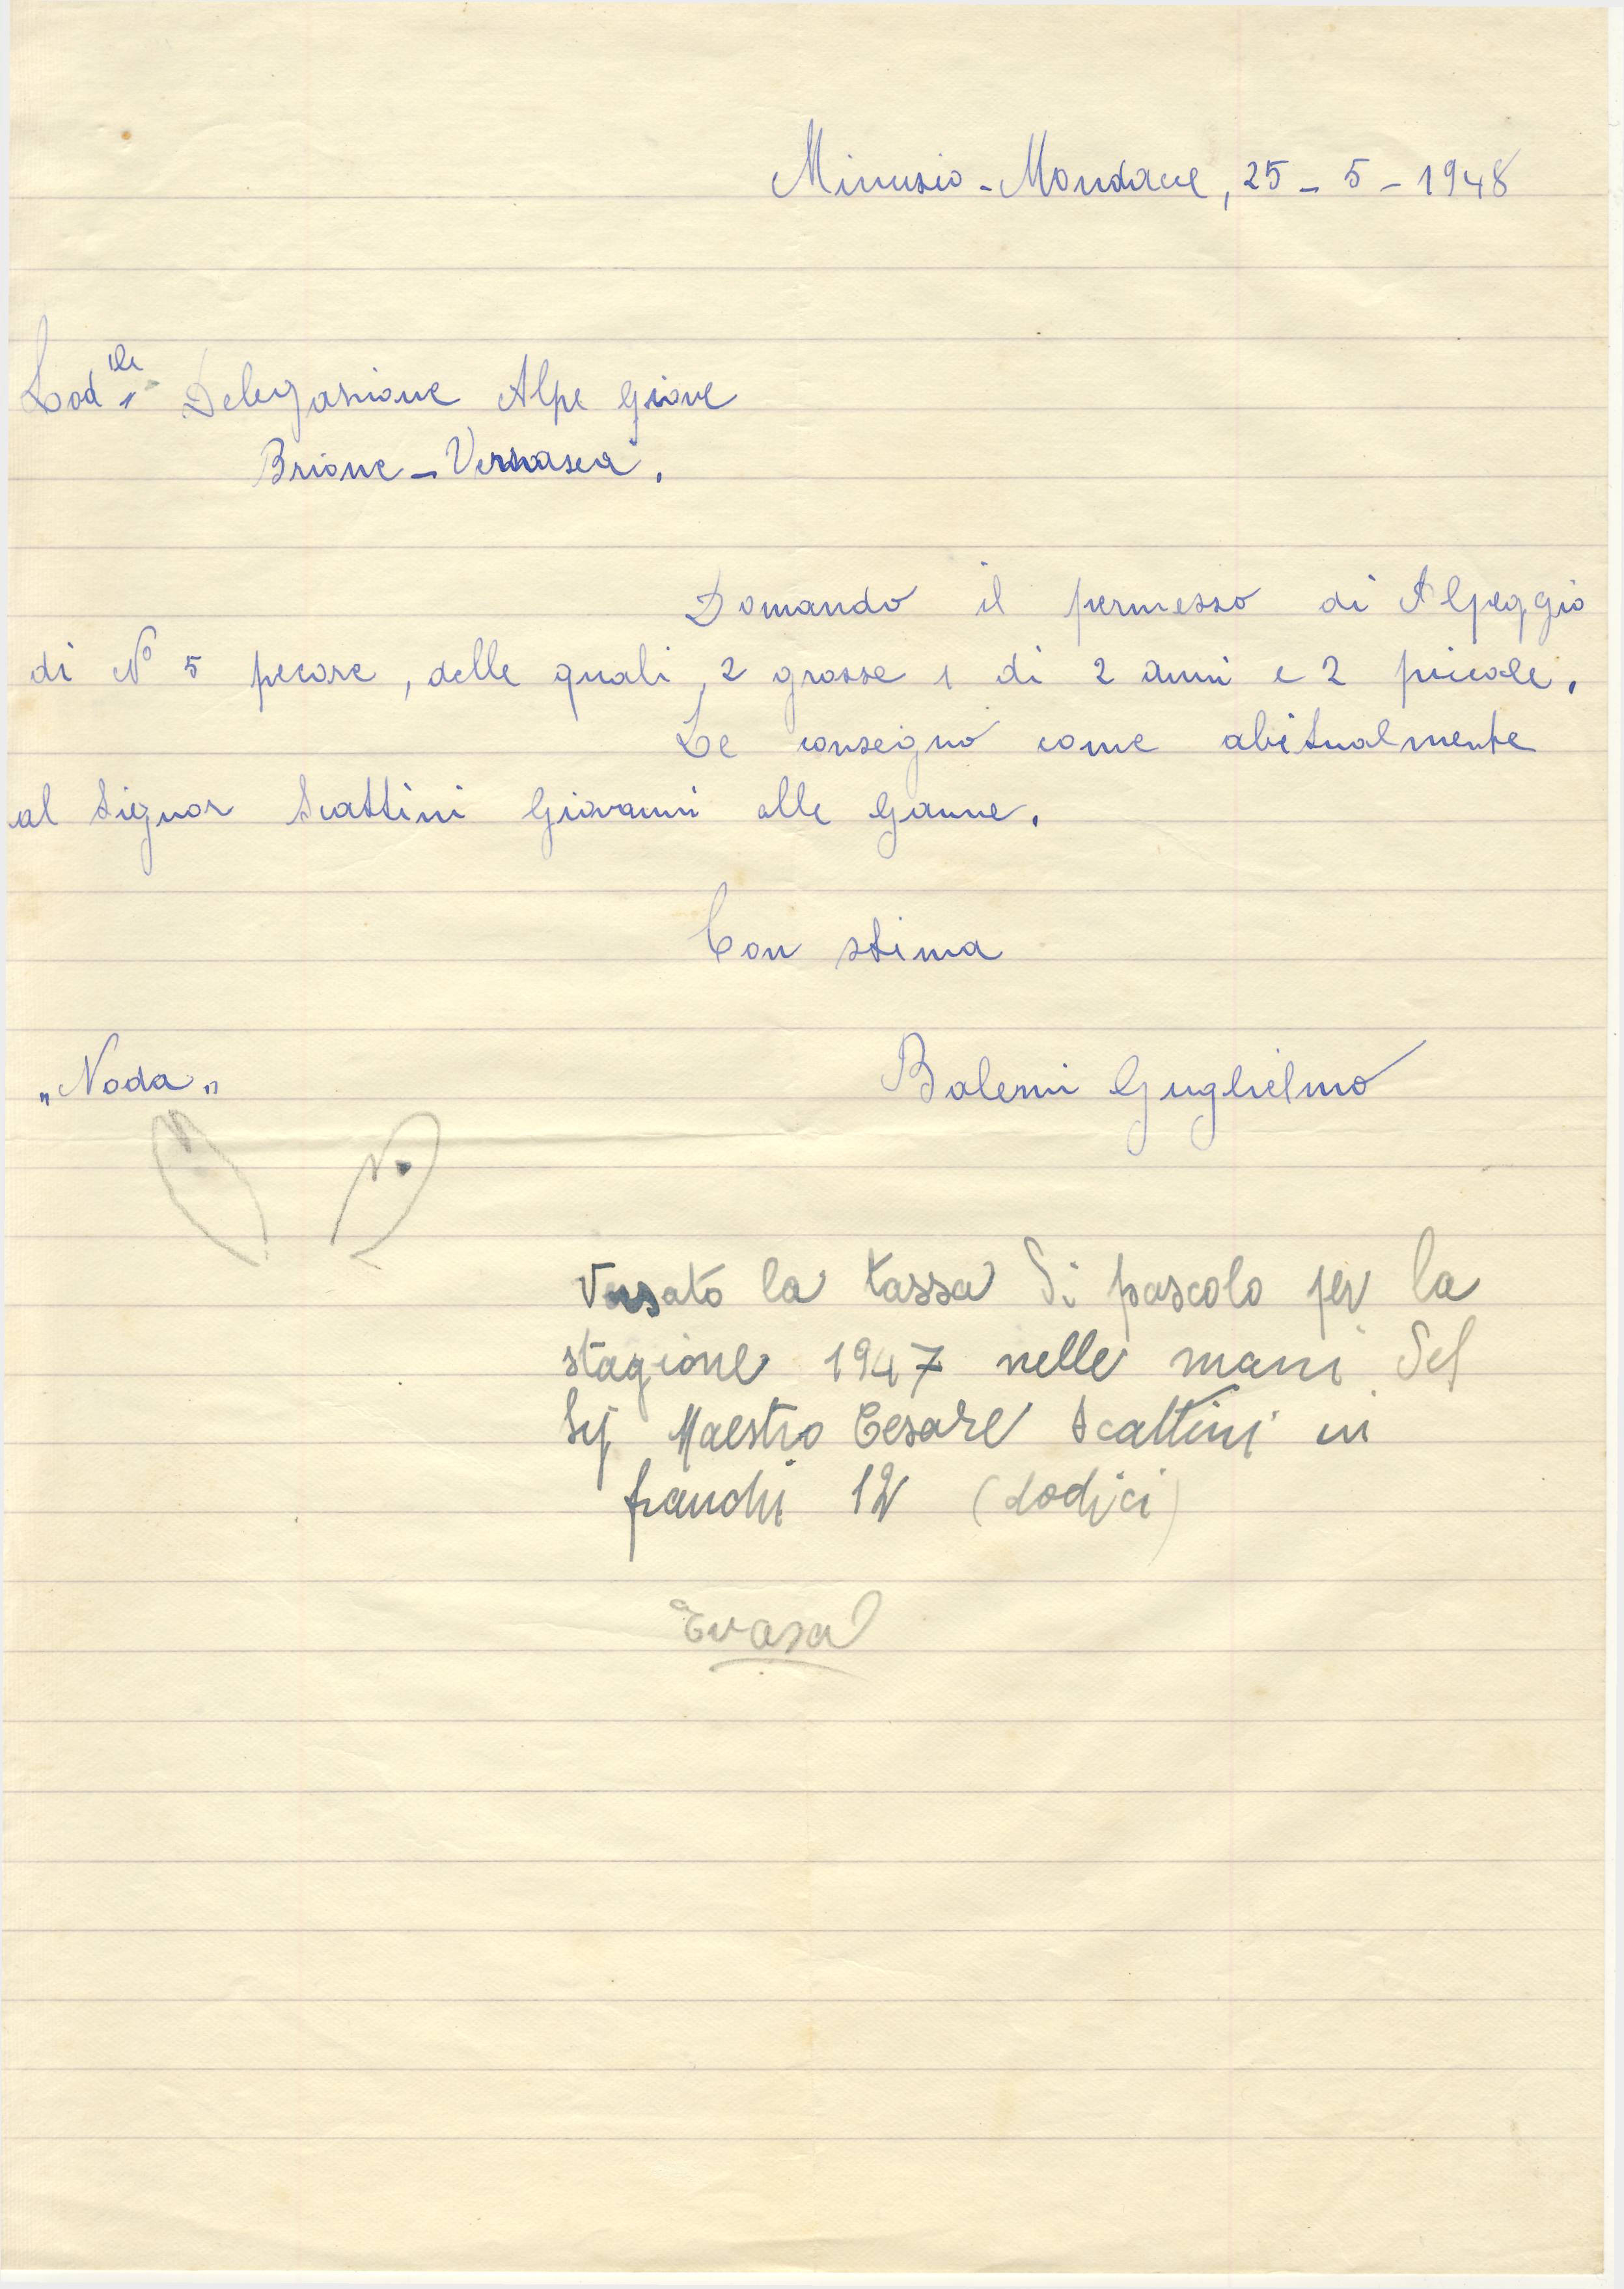 Minusio - Mondacce, 25 - 5 - 1948
Lod.le Delegazione Alpe Giove
Brione - Verzasca.
Domando il permesso di Alpeggio
di No 5 pecore, delle quali, 2 grosse 1 di 2 anni e 2 piccole.
Le consegno come abitualmente
al Signor Scattini Giovanni alle Ganne.
Con stima
"Noda" Balemi Guglielmo
Versato la tassa di pascolo per la
stagione 1947 nelle mani del
Sig Maestro Cesare Scattini in
franchi 12 (dodici)
Evasa